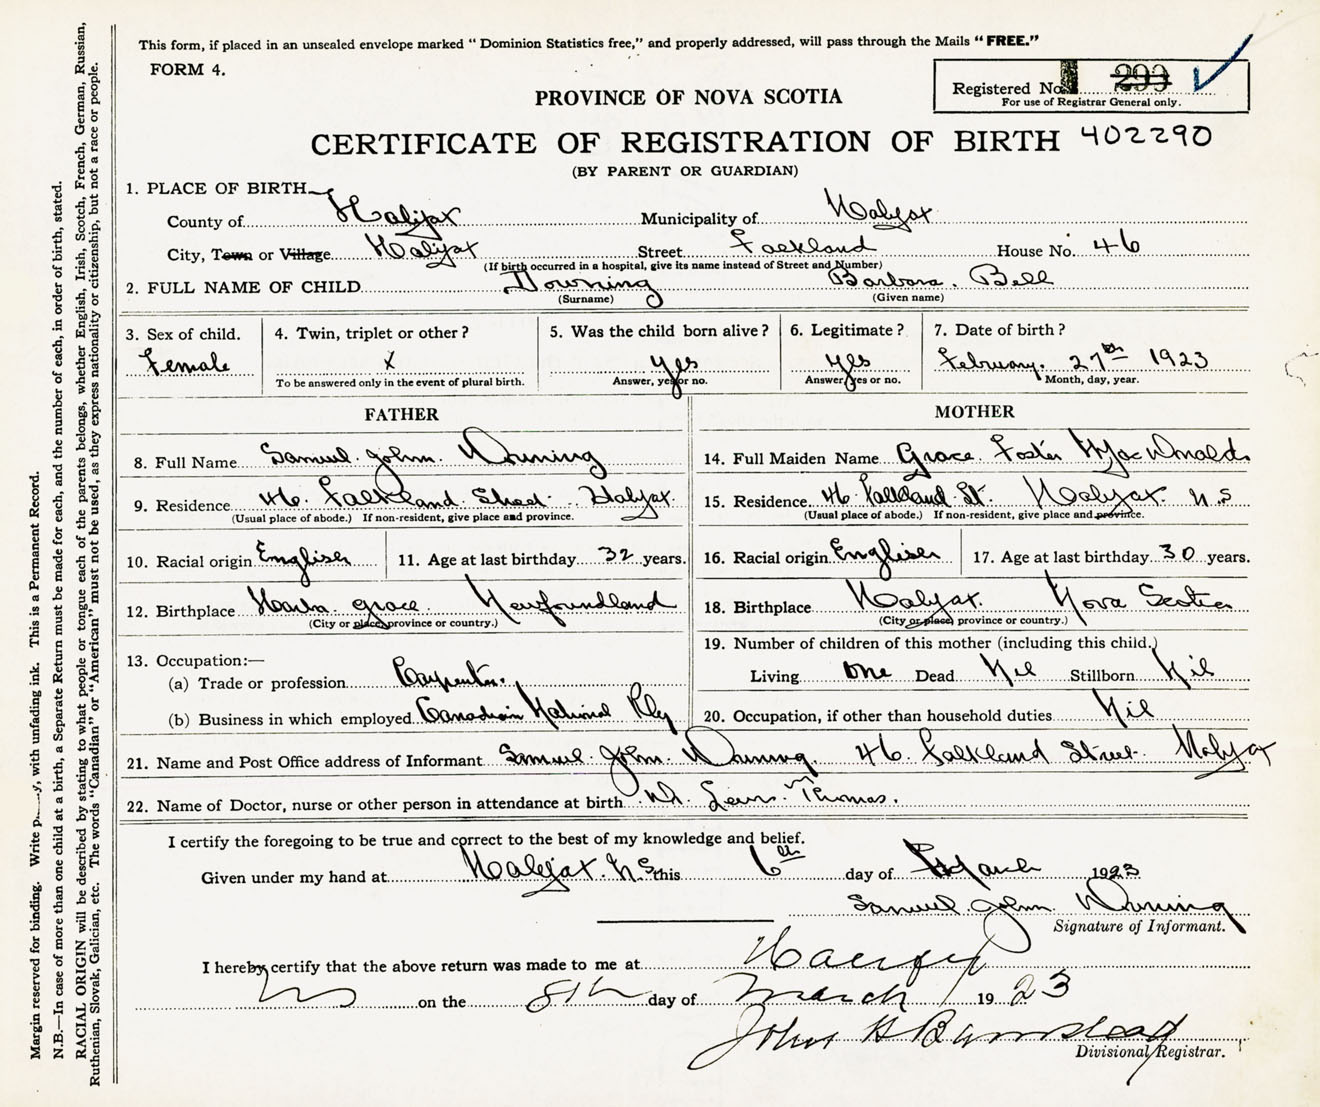 This form, if placed in an unsealed envelope marked "Dominion Statistics free," and properly addressed, will pass through the Mails "FREE."
FORM 4.
Registered No. 293
For use of Registrar General only.
PROVINCE OF NOVA SCOTIA
CERTIFICATE OF REGISTRATION OF BIRTH 402290
(BY PARENT OR GUARDIAN)
1. PLACE OF BIRTH
County of Halifax Municipality of Halifax
City, Town or Village Halifax Street Falkland House No. 46
(If birth occurred in a hospital, give its name instead of Street and Number)
2. FULL NAME OF CHILD Downing Barbara. Bell
(Surname) (Given name)
3. Sex of child. 4. Twin, triplet or other? 5. Was the child born alive? 6. Legitimate? 7. Date of birth?
Female X yes yes February. 27th 1923
To be answered only in the event of plural birth. Answer, yes or no. Answer, yes or no. Month, day, year.
FATHER MOTHER
8. Full Name Samuel John Downing 14. Full Maiden Name Grace Foster MacDonald
9. Residence 46 Falkland Street Halifax. 15. Residence 46 Falkland St. Halifax N.S
(Usual place of abode.) If non-resident, give place and province. (Usual place of abode.) If non-resident, give place and province.
10. Racial origin English 11. Age at last birthday 32 years. 16. Racial origin English 17. Age at last birthday 30 years.
12. Birthplace Harbor Grace Newfoundland 18. Birthplace Halifax. Nova Scotia
(City or place, province or country.) (City or place, province or country.)
13. Occupation:— 19. Number of children of this mother (including this child.)
(a) Trade or profession Carpenter. Living One Dead Nil Stillborn Nil
(b) Business in which employed Canadian National Rly 20. Occupation, if other than household duties Nil
21. Name and Post Office address of Informant Samuel John Downing. 46 Falkland Street Halifax
22. Name of Doctor, nurse or other person in attendance at birth Dr. Lewis Thomas.
I certify the foregoing to be true and correct to the best of my knowledge and belief.
Given under my hand at Halifax. N.S this 6th day of March 1923
Samuel John Downing
Signature of Informant.
I hereby certify that the above return was made to me at Halifax
NS on the 8th day of March 1923
John H Barnstead
Divisional Registrar.
Margin reserved for binding. Write , with unfading ink. This is a Permanent Record.
N.B.—In case of more than one child at a birth, a Separate Return must be made for each, and the number of each, in order of birth, stated.
RACIAL ORIGIN will be described by stating to what people or tongue each of the parents belongs, whether English, Irish, Scotch, French, German, Russian,
Ruthenian, Slovak, Galician, etc. The words "Canadian" or "American" must not be used, as they express nationality or citizenship, but not a race or people.